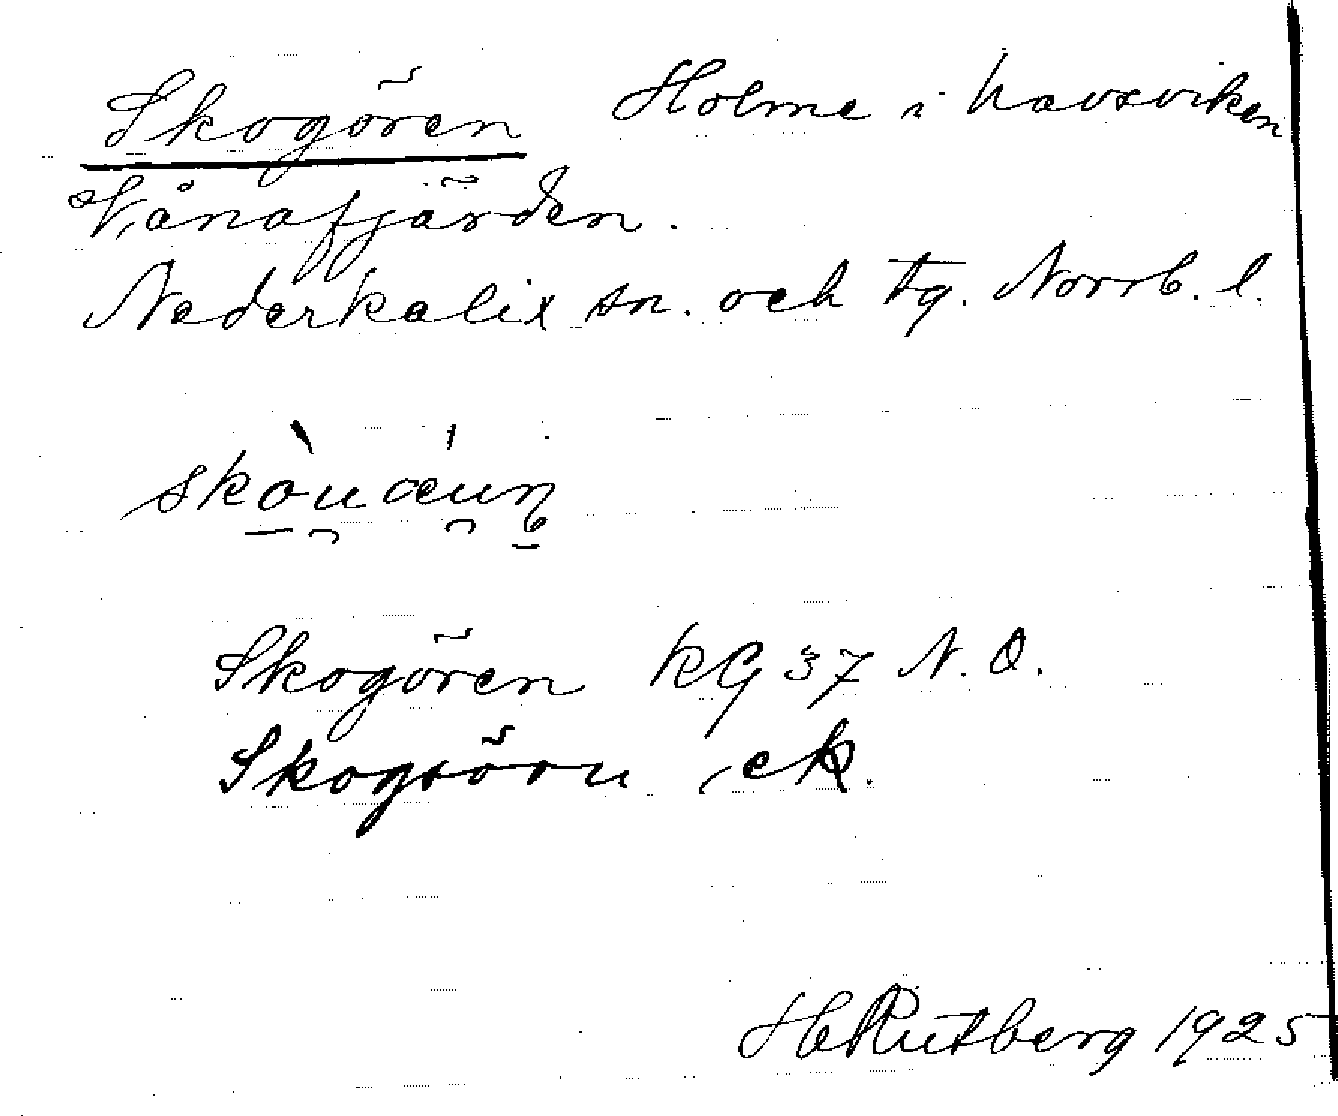 Skogören Holme i havsviken
Vånafjärden.
Nederkalix sn. och tg. Norrb. l.
skòu̯œ́u̯n̥
Skogören KG 37 N.O.
Skogsörn ek.
H Rutberg 1925